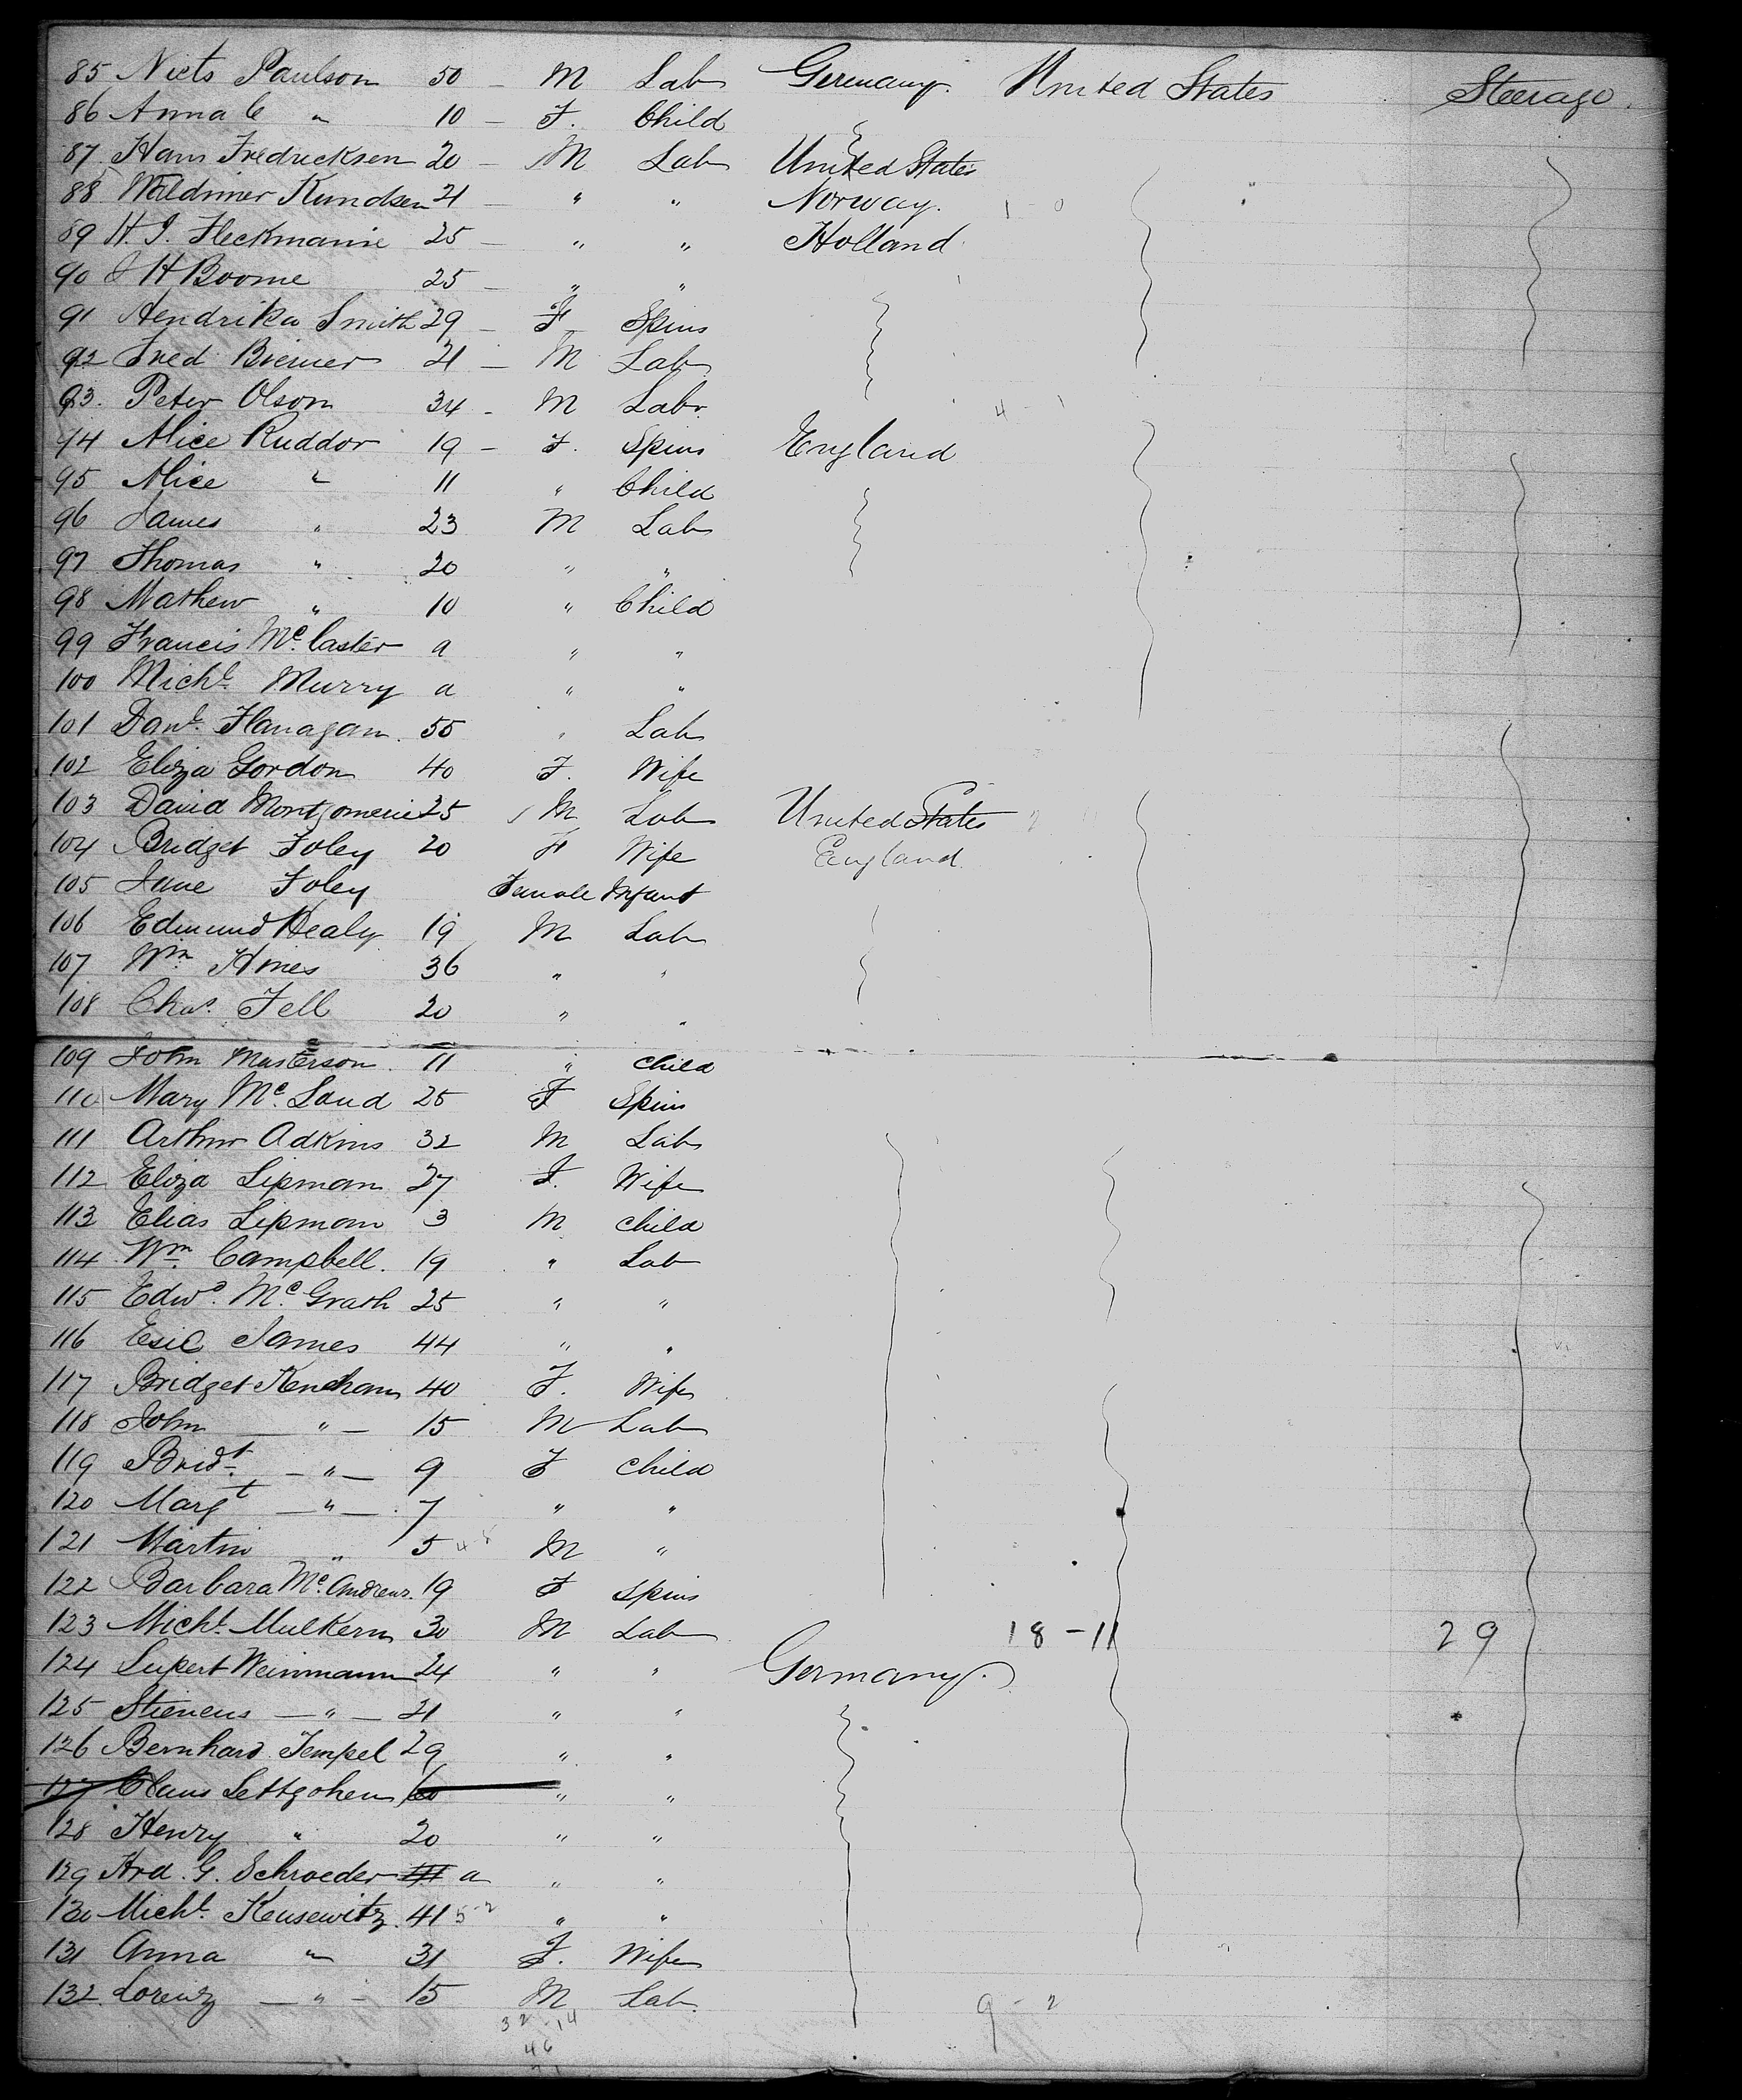 85 Niels Paulson 50 - M Lab Germany. United States Steerage.
86 Anna C " 10 - F. Child
87. Hans Fredricksen 20 - M Lab United States
88 Waldimer Kundsen 21 - " " Norway. 1 - 0
89 H. J. Fleckmanie 25 - " " Holland
90 J H Boome 25 - " "
91 Hendrika Smith 29 - F Spins
92 Fred Briemer 21 - M Lab
93. Peter Olson 34 - M Labr 4 - 1
94 Alice Ruddor 19 - F. Spins England
95 Alice " 11 " Child
96 James " 23 M Lab
97 Thomas " 20 " "
98 Mathew " 10 " Child
99 Francis Mc. Caster a " "
100 Michl. Murry a " "
101 Danl. Flanagan. 55 " Lab
102 Eliza Gordon 40 F. Wife
103 David Montgomerie 25 M Lab United States
104 Bridget Foley 20 F Wife England
105 Jane Foley Female Infant
106 Edmund Healy 19 M Lab
107 Wm Hines 36 " "
108 Chas. Fell 20 " "
109 John Masterson. 11 " child
110 Mary Mc. Loud 25 F Spins
111 Arthur Adkins 32 M Lab
112 Eliza Lipman 27 F. Wife
113 Elias Lipman 3 M child
114 Wm. Campbell. 19 " Lab
115 Edwd. Mc. Grath 25 " "
116 Esic James 44 " "
117 Bridget Kenehan 40 F. Wife
118 John — " — 15 M Lab
119 Bridt. — " — 9 F child
120 Margt — " — 7 " "
121 Martin " 5 M "
122 Barbara Mc. Andrews. 19 F Spins
123 Michl. Mulkern 30 M Lab 18 - 11 29
124 Lupert Weinmann 24 " " Germany.
125 Stienens — " — 21 " "
126 Bernhard Tempel 29 " "
127 Claus Lettgohen 60 " "
128 Henry " 20 " "
129 Hrd. G. Schroeder a " "
130 Michl. Kensewitz. 41 5-2 " "
131 Anna " 31 F. Wife
132. Lorenz — " — 15 M Lab. 9 - 2
32 - 14
46